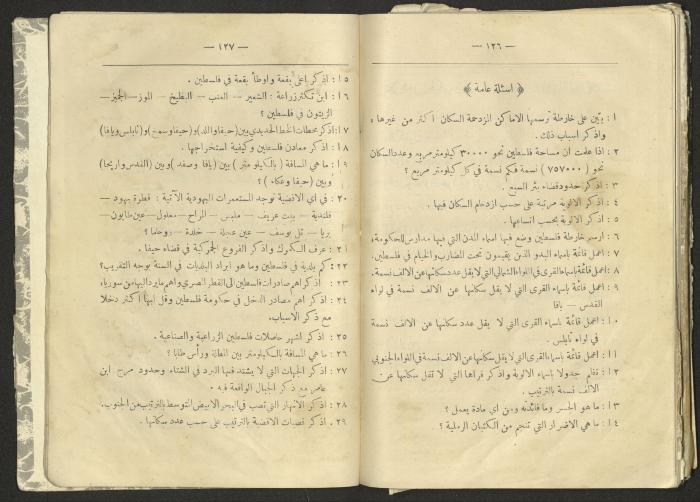 — ١٢٦ —
﴿ اسئلة عامة ﴾
١ : بيّن على خارطة ترسمها الاماكن المزدحمة السكان اكثر من غيرها ،
واذكر اسباب ذلك .
٢ : اذا علمت ان مساحة فلسطين نحو ٣٠٠٠٠ كيلومتر مربع وعدد السكان
نحو ( ٧٥٧٠٠٠ ) نسمة فكم نسمة في كل كيلومتر مربع ؟
٣ : اذكر حدود قضاء بئر السبع .
٤ : اذكر الالوية مرتبة على حسب ازدحام السكان فيها .
٥ : اذكر الالوية بحسب اتساعها .
٦ : ارسم خارطة فلسطين وضع فيها اسماء المدن التي فيها مدارس للحكومة .
٧ : اعمل قائمة باسماء البدو الذين يقيمون تحت المضارب والخيام في فلسطين .
٨ : اعمل قائمة باسماء القرى في اللواء الشمالي التي لا يقل عدد سكانها عن الالف نسمة .
٩ : اعمل قائمة باسماء القرى التي لا يقل سكانها عن الالف نسمة في لواء
القدس — يافا
١٠ : اعمل قائمة باسماء القرى التي لا يقل عدد سكانها عن الالف نسمة
في لواء نابلس .
١١ : اعمل قائمة باسماء القرى التي لا يقل سكانها عن الالف نسمة في اللواء الجنوبي
١٢ : نظم جدولا باسماء الالوية واذكر قراها التي لا تقل سكانها عن
الالف نسمة بالترتيب .
١٣ : ما هو الجسر وما فائدته ومن اي مادة يعمل ؟
١٤ : ما هي الاضرار التي تنجم من الكثبان الرملية ؟
— ١٢٧ —
١٥ : اذكر اعلى بقعة واوطأ بقعة في فلسطين .
١٦ : اين تكثر زراعة : الشعير — العنب — البطيخ — الموز — الجميز —
الزيتون في فلسطين ؟
١٧ : اذكر محطات الخط الحديدي بين (حيفا واللد) و(حيفا وسمخ) و(نابلس ويافا)
١٨ : اذكر معادن فلسطين وكيفية استخراجها .
١٩ : ما هي المسافة ( بالكيلو متر ) بين ( يافا وصفد ) وبين ( القدس واريحا )
وبين ( حيفا وعكاء ) ؟
٢٠ : في اي الاقضية توجد المستعمرات اليهودية الآتية : قطرة يهود —
قلندية — بيت عريف — ملبس — المراح — معلول — عين طابون —
بريا — تل يوسف — عين عجلة — خلدة — روحفا ؟
٢١ : عرف الكمرك واذكر الفروع الجمركية في قضاء حيفا .
٢٢ : كم بلدية في فلسطين وما هو ايراد البلديات في السنة بوجه التقريب ؟
٢٣ : اذكر اهم صادرات فلسطين الى القطر المصري واهم ما يرد اليها من سوريا .
٢٤ : اذكر اهم مصادر الدخل في حكومة فلسطين وقل ايها اكثر دخلا
مع ذكر الاسباب .
٢٥ : اذكر اشهر حاصلات فلسطين الزراعية والصناعية .
٢٦ : ما هي المسافة بالكيلومتر بين المطلة ورأس طابا ؟
٢٧ : اذكر الجهات التي لا يشتد فيها البرد في الشتاء وحدود مرج ابن
عامر مع ذكر الجبال الواقعة فيه .
٢٨ : اذكر الانهار التي تصب في البحر الابيض المتوسط بالترتيب من الجنوب .
٢٩ : اذكر قصبات الاقضية بالترتيب على حسب عدد سكانها .